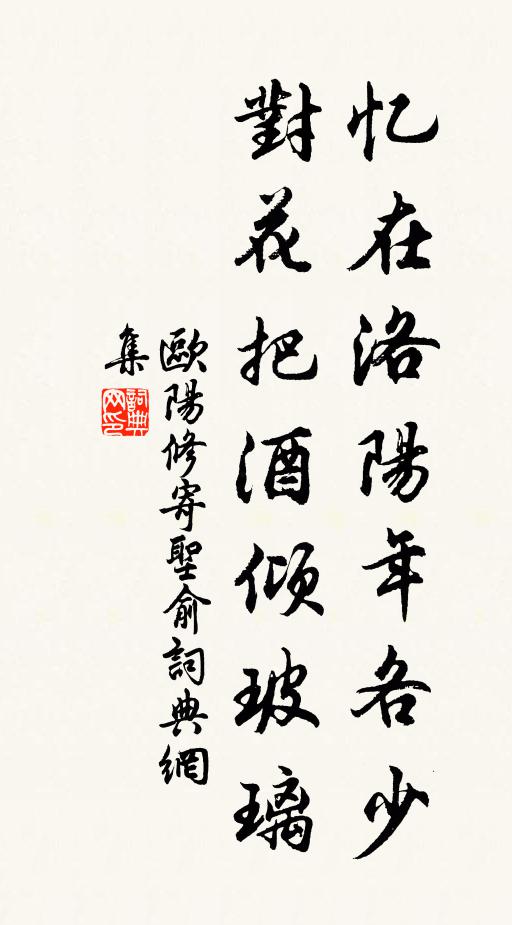 忆在洛陽年各少
對花把酒倾玻璃
歐陽修寄聖俞詞典網
集
詞典网印